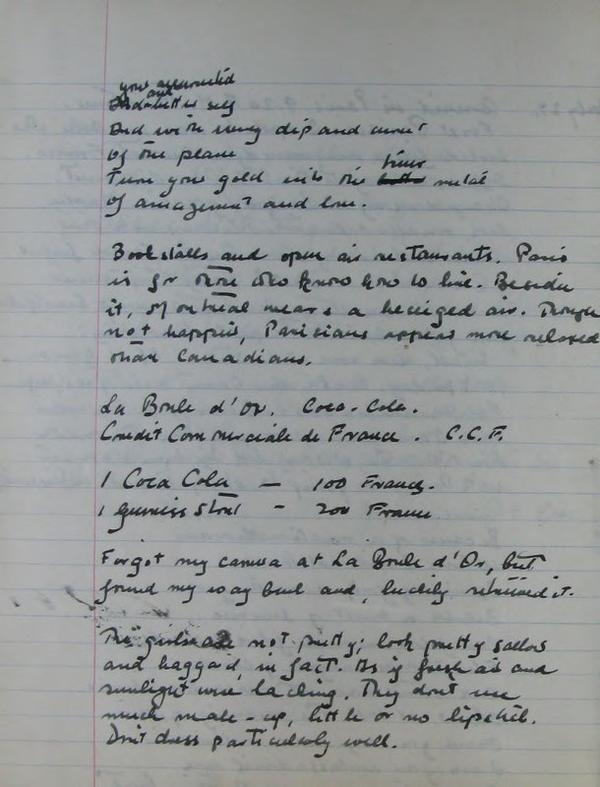 your
And with every dip and
of the plane
Turn your gold into the finer metal
of amazement and love.
Bookstalls and open air restaurants. Paris
is for those who know how to live. Beside
it, Montreal wears a besieged air. Though
not happier, Parisians appear more relaxed
than Canadians.
La Boule d'Or. Coca-Cola.
Credit Commerciale de France. C.C.F.
1 Coca Cola — 100 Francs.
1 Guiness Stout - 200 Francs
Forgot my camera at La Boule d'Or, but
found my way back and, luckily retrieved it.
The girls are not pretty; look pretty sallow
and haggard, in fact. As if fresh air and
sunlight were lacking. They don't use
much make-up, little or no lipstick.
Don't dress particularly well.